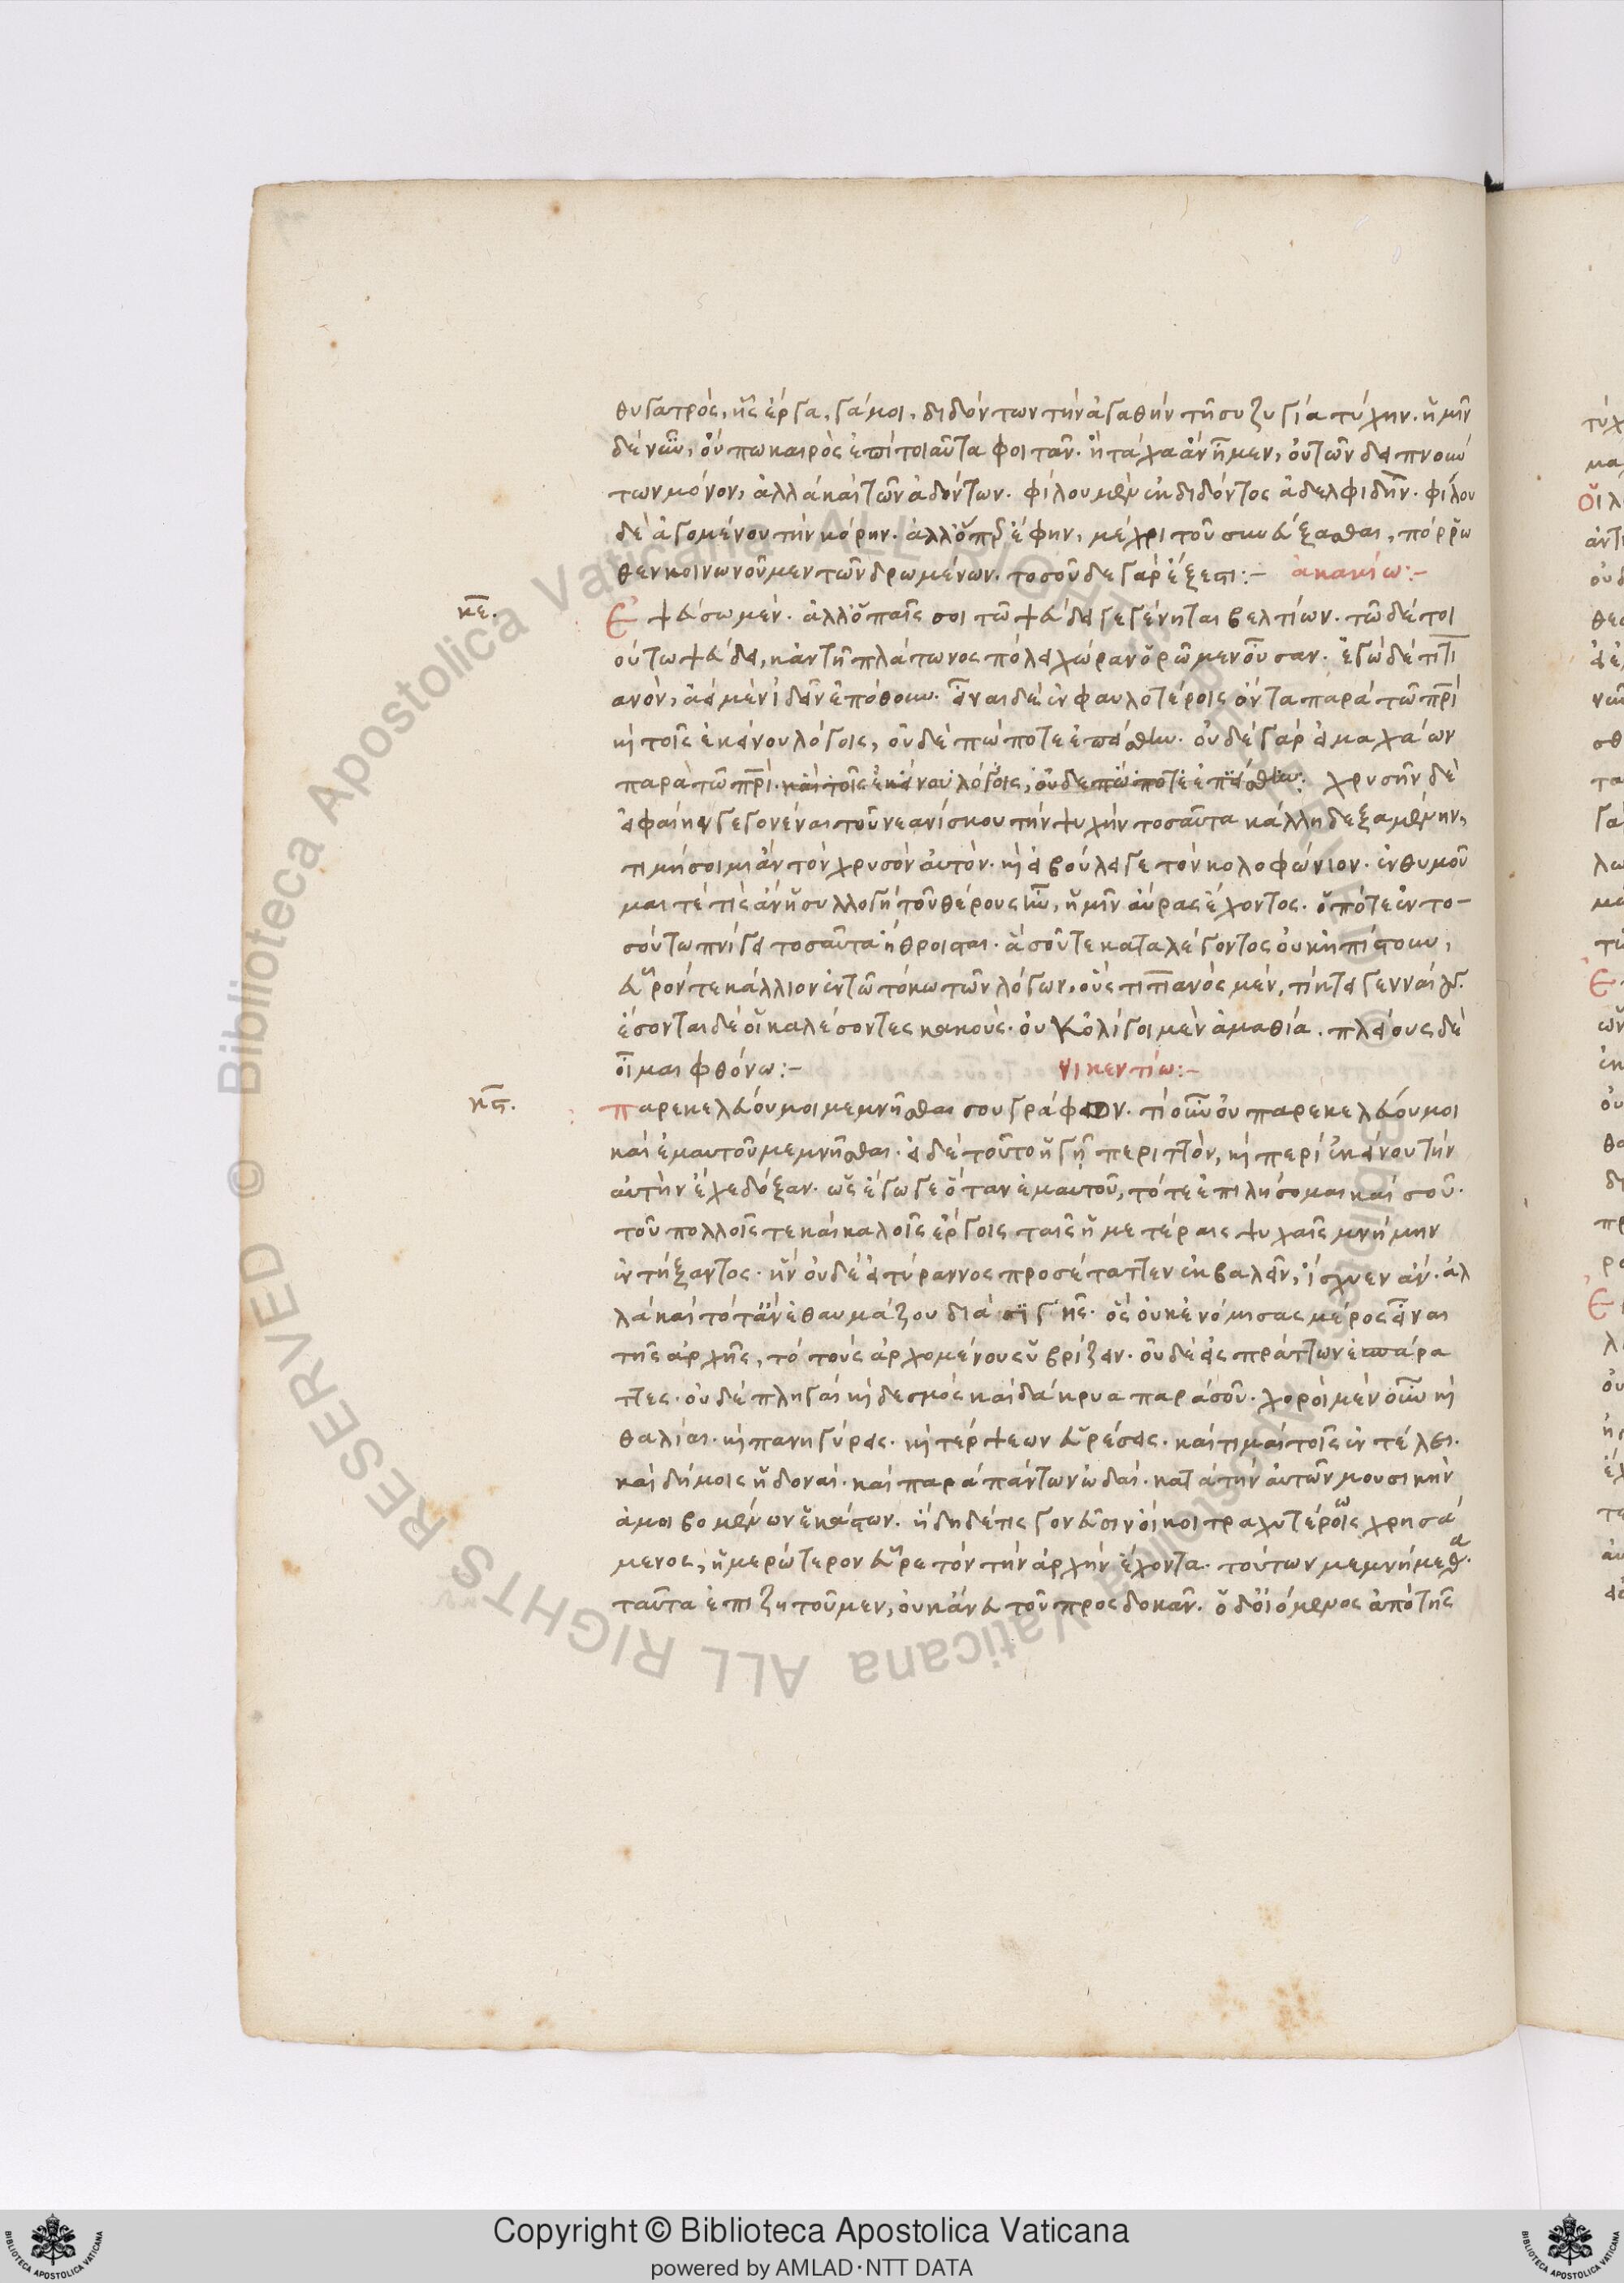 θυγατρὸς, ἧς ἔργα, γάμοι, διδόντων τὴν ἀγαθὴν τῇ συζυγία τύχην. ἡμῖν
δὲ νῦν, οὔπω καιρὸς ἐπὶ τοιαῦτα φοιτᾶν. ἢ τάχα ἂν ἦμεν, οὐ τῶν δειπνούν
των μόνον, ἀλλὰ καὶ τῶν ἀδόντων. φίλου μὲν ἐκδιδόντος ἀδελφιδῆν. φίλου
δὲ ἀγομένου τὴν κόρην. ἀλλ' ὅπερ ἔφην, μέχρι τοῦ συνεύξασθαι, πόρρω
θεν κοινωνοῦμεν τῶν δρωμένων. τοσοῦδε γὰρ ἔξεστι:– ἀκακίω:–
κε.
Ἐψευσω μὲν. ἀλλ' ὁ παῖς σοι τῶ ψεύδει γεγένηται βελτίων. τῶ δέ τοι
ούτω ψεύδει, κἀν τῆ πλάτωνος πόλει χώραν ὁρῶμεν οὖσαν. ἐγὼ δὲ τιτι
ανὸν, ἀεὶ μὲν ἰδεῖν ἐπόθουν. εἶναι δὲ ἐν φαυλοτέροις ὄντα παρὰ τῶ πατρὶ
καὶ τοῖς ἐκείνου λόγοις, οὐδὲ πώποτε ἐπείσθην. οὐδὲ γὰρ εἰ μαχάων
παρὰ τῶ πατρὶ. καὶ τοῖς ἐκείνου λόγοις, οὐδεπώποτε ἐπείσθην: χρυσῆν δὲ
εἰ φαίην γεγονέναι τοῦ νεανίσκου τὴν ψυχὴν τοσαῦτα κάλλη δεξαμένην,
τιμήσοιμι ἂν τὸν χρυσὸν αὐτόν. καὶ εἰ βούλει γε τὸν κολοφώνιον. ἐνθυμοῦ
μαι τέ τις ἂν ἡ συλλογὴ τοῦ θέρους ἦν, ἡμῖν αὔρας ἔχοντος. ὁπότε ἐν το-
σούτω πνίγει τοσαῦτα ἤθροισται. ἅ σοῦ τε καταλέγοντος οὐκ ἠπίστουν,
εὗρόν τε κάλλιον ἐν τῶ τόκω τῶν λόγων, οὓς τιτιανὸς μὲν, τίκτει γενναίους.
ἔσονται δὲ οἱ καλέσοντες κακούς. οὐκ ὀλίγοι μὲν ἀμαθία. πλείους δὲ
οἶμαι φθόνω:– νικεντίω:–
κϛ.
παρεκελεύου μοι μεμνῆσθαι σου γράφειν. τί οὖν οὐ παρεκελεύου μοι
καὶ ἐμαυτοῦ μεμνῆσθαι. εἰ δὲ τοῦτο ἡγῆ περιττὸν, καὶ περὶ ἐκείνου τὴν
αὐτὴν ἔχε δόξαν. ὡς ἔγωγε ὅταν ἐμαυτοῦ, τότε ἐπιλήσομαι καὶ σοῦ.
τοῦ πολλοῖς τε καὶ καλοῖς ἔργοις ταῖς ἡμετέραις ψυχαῖς μνήμην
ἐντήξαντος. ἣν οὐδὲ εἰ τύραννος προσέταττεν ἐκβαλεῖν, ἴσχυεν ἄν. ἀλ
λὰ καὶ τότ' ἂν ἐθαυμάζου διὰ σιγῆς. ὃς οὐκ ἐνόμισας μέρος εἶναι
τῆς ἀρχῆς, τὸ τοὺς ἀρχομένους ὑβρίζειν. οὐδὲ εἰσπράττων ἐσπάρα
ττες. οὐδὲ πληγαὶ καὶ δεσμὸς καὶ δάκρυα παρὰ σοῦ. χοροὶ μὲν οὖν καὶ
θαλίαι. καὶ πανηγύρεις. καὶ τέρψεων εὑρέσεις. καὶ τιμαὶ τοῖς ἐν τέλει.
καὶ δήμοις ἡδοναί. καὶ παρὰ πάντων ὠδαί. κατὰ τὴν αὐτῶν μουσικὴν
ἀμοιβομένων ἑκάστων. ἤδη δέ τις γονεῦσιν οἴκοι τραχυτέροις χρησά
μενος, ἡμερώτερον εὗρε τὸν τὴν ἀρχὴν ἔχοντα. τούτων μεμνήμεθα.
ταῦτα ἐπιζητοῦμεν, οὐκ ἄνευ τοῦ προσδοκᾶν. ὁ δὲ οἰόμενος ἀπὸ τῆς